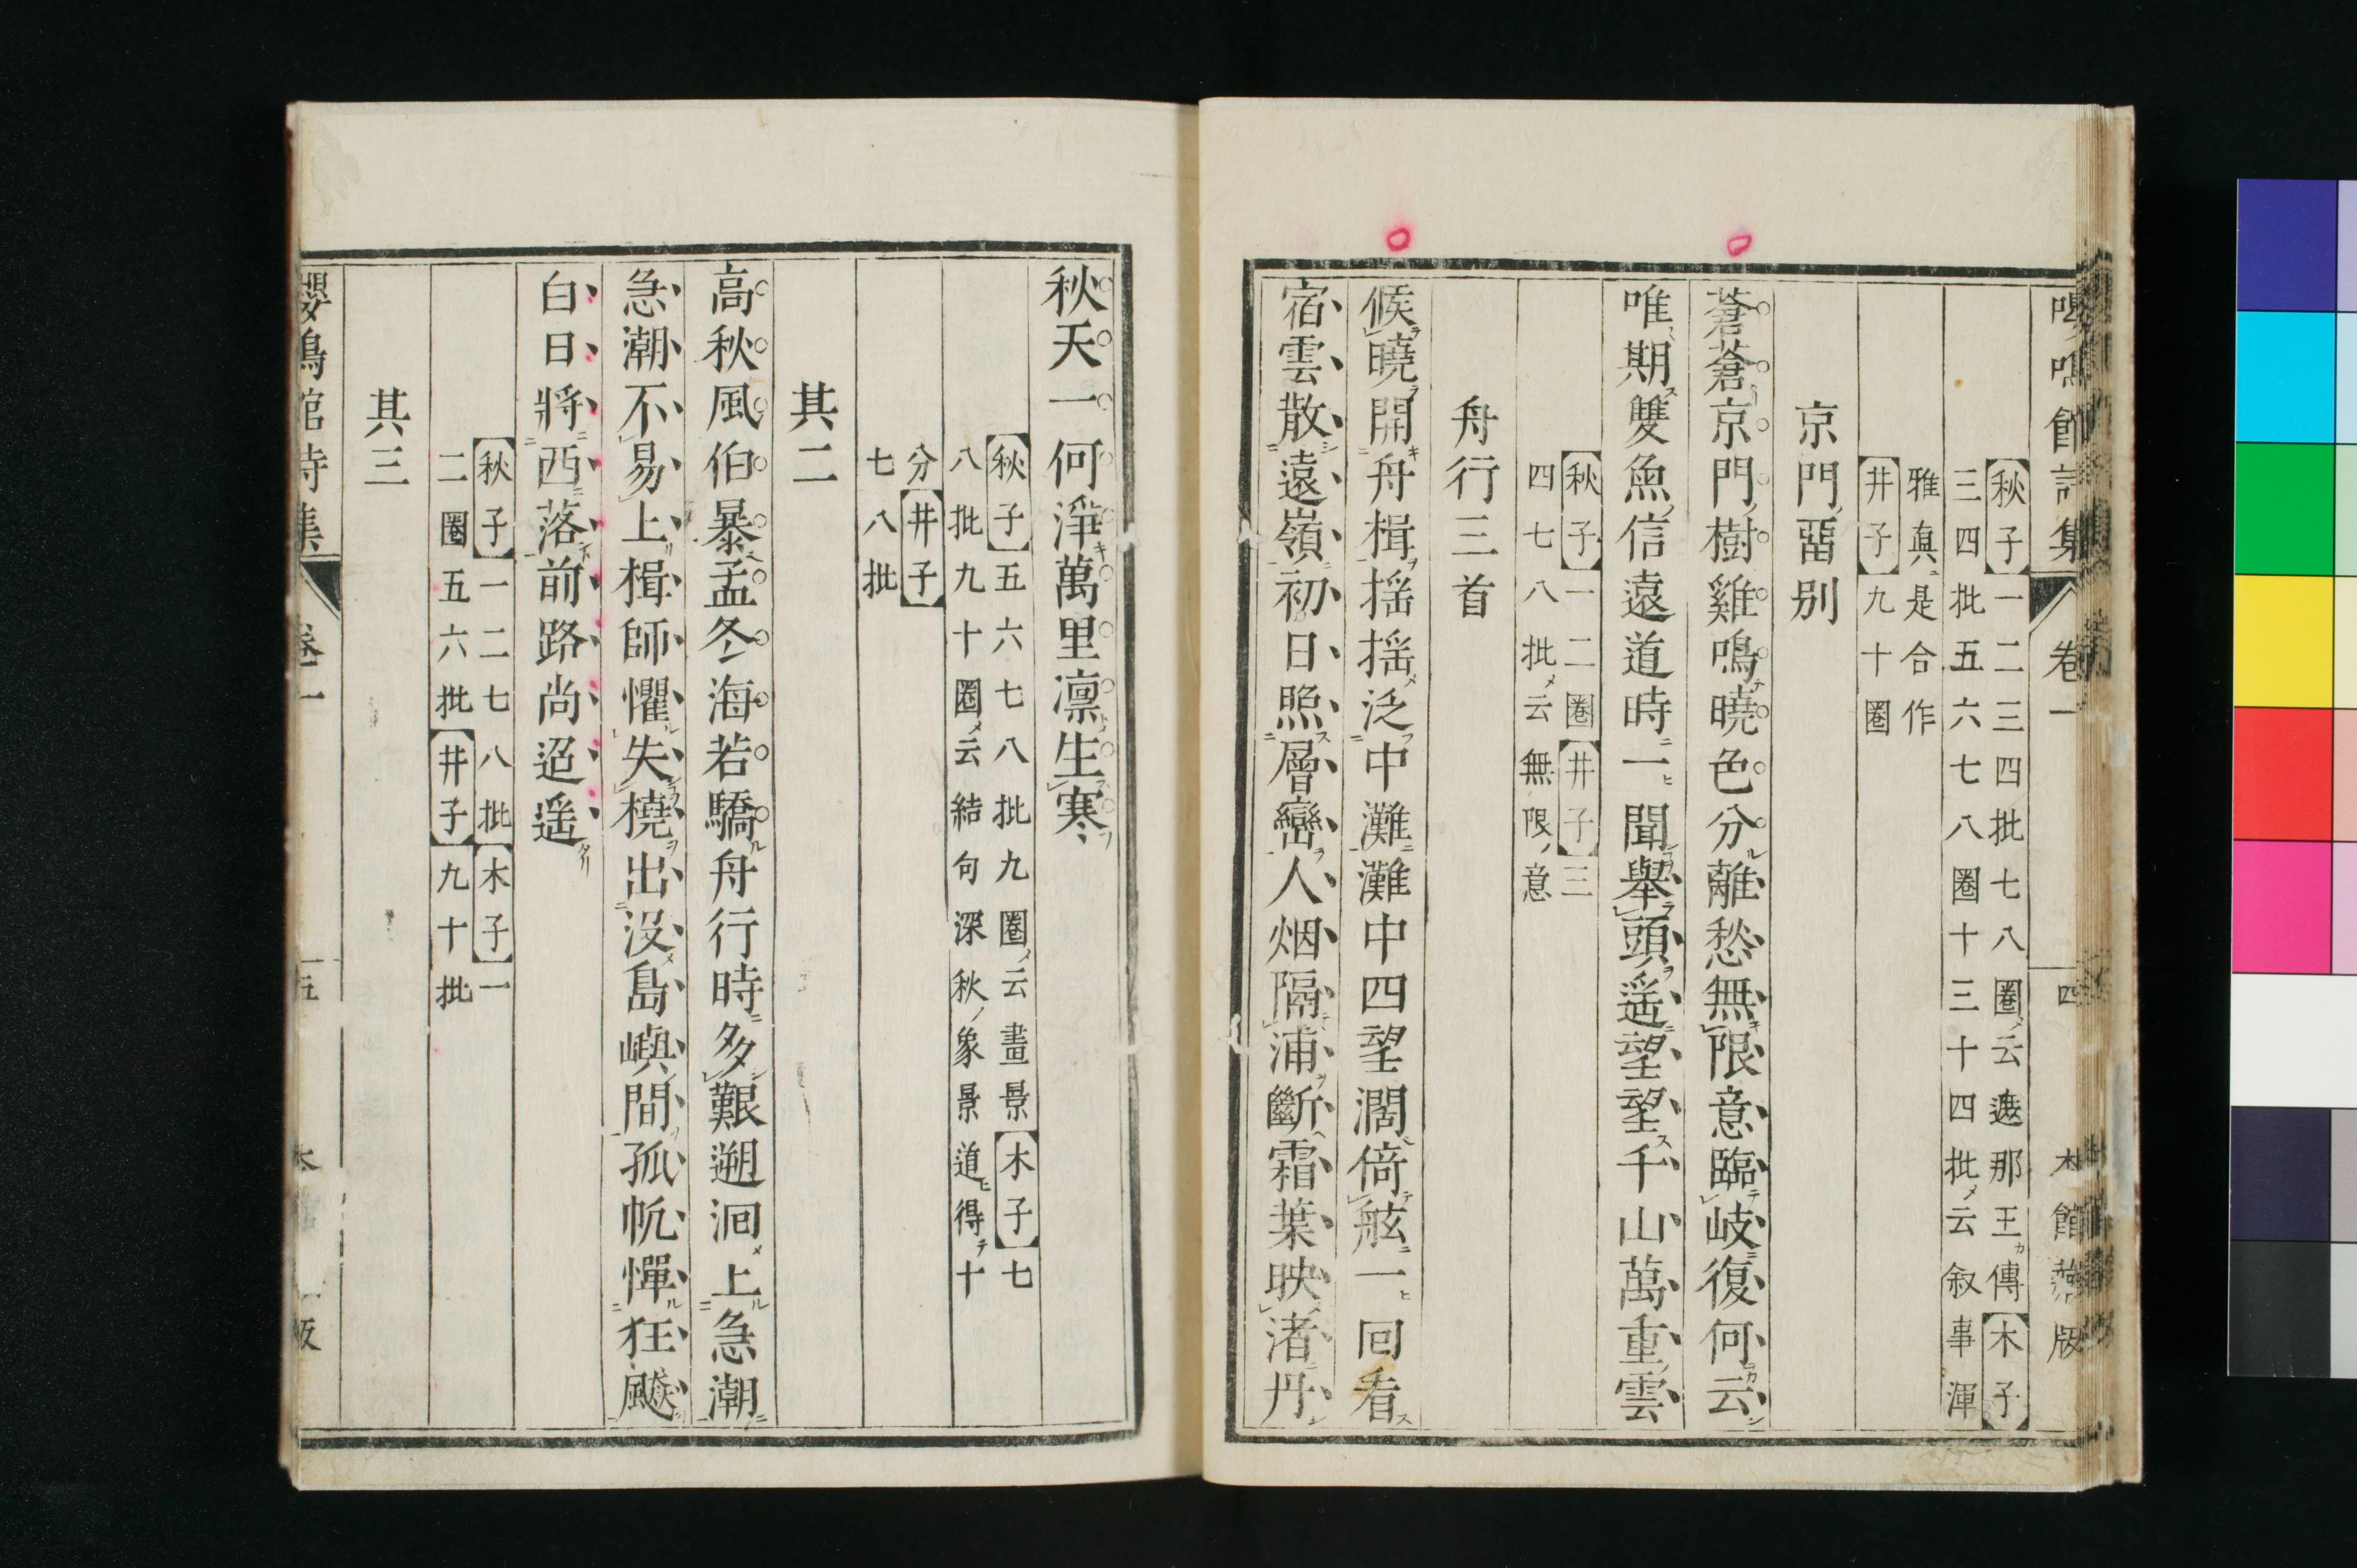 嚶鳴館詩集 卷一 四 木館藏版
【秋子】一二三四批七八圈メ云遮那王カ傳【木子】
三四批五六七八圈十三十四批メ云叙事渾
雅眞是合作
【井子】九十圈
京門畱別
蒼蒼京門樹雞鳴曉色分離愁無限意臨岐復何云
唯期雙魚信遠道時一聞舉頭遥望望千山萬重雲
【秋子】一二圈【井子】三
四七八批メ云無限ノ意
舟行三首
候曉開舟楫揺揺泛中灘灘中四望濶倚舷一回看
宿雲散遠嶺初日照層巒人烟隔浦斷霜葉映渚丹
秋天一何淨萬里凛生寒
【秋子】五六七八批九圈メ云畫景【木子】七
八批九十圈メ云結句深秋ノ象景道ヒ得テ十
分【井子】
七八批
其二
高秋風伯暴孟冬海若驕舟行時多艱遡洄上急潮
急潮不易上楫師懼失橈出沒島嶼間孤帆憚狂飈
白日將西落前路尚迢遥
【秋子】一二七八批【木子】一
二圈五六批【井子】九十批
其三
嚶鳴館詩集 卷一 五